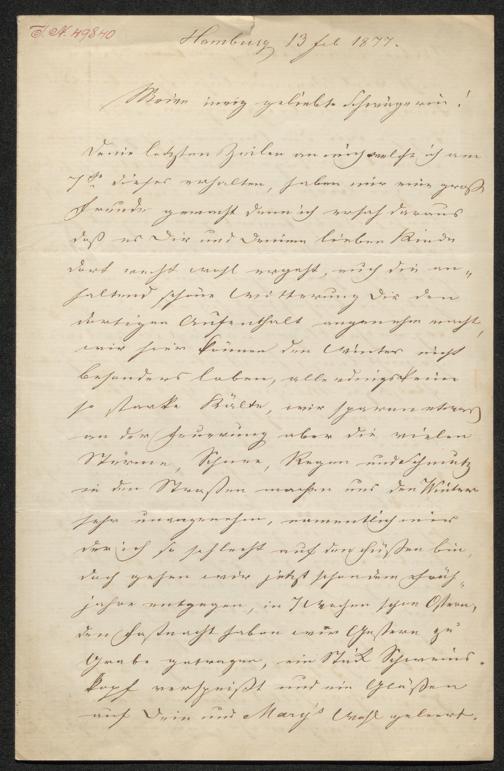 I. N. 49840
Hamburg 13 feb 1877.
Meine innig geliebte Schwägerin!
Deine letzten Zeilen an mich welche ich am
7t. dieses erhalten, haben mir eine große
Freunde gemacht denn ich ersah daraus
daß es Dir und Deinem lieben Kinde
dort recht wohl ergeht, auch die an„
haltend schöne Witterung Dir den
dortigen Aufenthalt angenehm macht,
wir hier können den Winter nicht
besonders loben, allerdings keine
so starke Kälte, wir sparen etwas
an der Feuerung aber die vielen
Stürme, Schnee, Regen und Schmutz
in den Straßen machen uns den Winter
sehr unangenehm, namentlich mir
der ich so schlecht auf den Füßen bin,
doch gehen wir jetzt schon dem Früh„
jahre entgegen, in 7 Wochen schon Ostern,
den Fastnacht haben wir Gestern zu
Grabe getragen, ein Stük Schweins„
kopf verspeißt und ein Gläßchen
auf Dein und Mary's Wohl geleert.